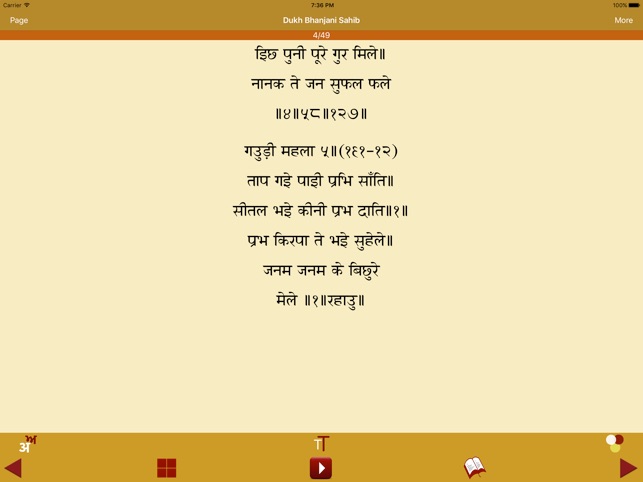 Carrier 7:36 PM 100%
Page Dukh Bhanjani Sahib More
4/49
इिछ पुनी पूरे गुर मिले॥
नानक ते जन सुफल फले
॥४॥५८॥१२७॥
गउुड़ी महला ५॥(१९१-१२)
ताप गइे पाइी प्रभि साँति॥
सीतल भइे कीनी प्रभ दाति॥१॥
प्रभ किरपा ते भइे सुहेले॥
जनम जनम के बिछुरे
मेले ॥१॥रहाउु॥
अ ਅ
TT